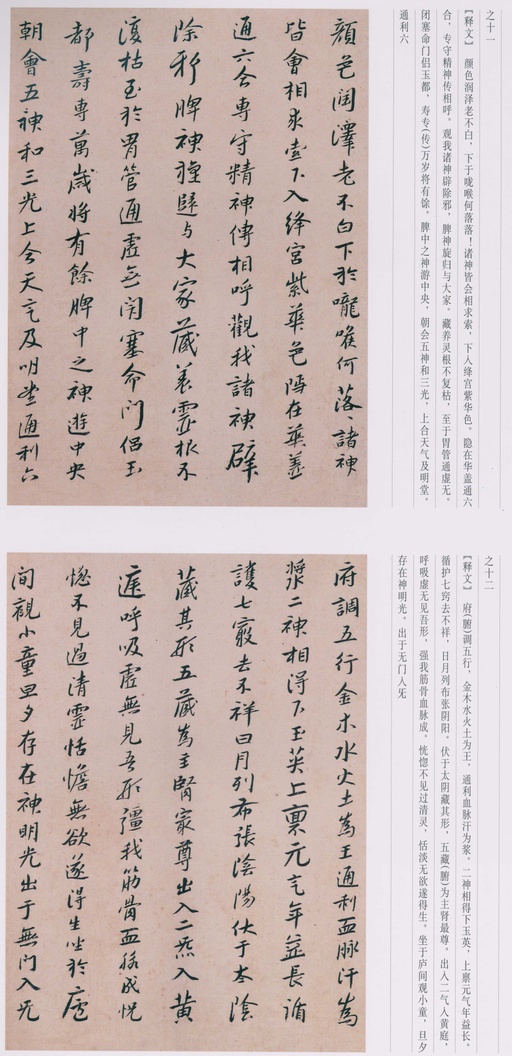 之十一
【释文】 颜色润泽老不白，下于咙喉何落落！诸神皆会相求索，下入绛宫紫华色。隐在华盖通六
合，专守精神传相呼。观我诸神辟除邪，脾神旋归与大家。藏养灵根不复枯，至于胃管通虚无。
闭塞命门侣玉都，寿专(传)万岁将有馀。脾中之神游中央，朝会五神和三光，上合天气及明堂。
通利六
顏色潤澤老不白下於嚨喉何落諸神
皆會相求索下入絳宮紫華色隱在華蓋
通六合專守精神傳相呼觀我諸神辟
除邪脾神還歸与大家藏養靈根不
復枯至於胃管通虛無閉塞命門侶玉
都壽專萬歲將有餘脾中之神遊中央
朝會五神和三光上合天氣及明堂通利六
之十二
【释文】 府(腑)调五行，金木水火土为王，通利血脉汗为浆。二神相得下玉英，上禀元气年益长。
循护七窍去不祥，日月列布张阴阳。伏于太阴藏其形，五藏(腑)为主肾最尊。出入二气入黄庭，
呼吸虚无见吾形，强我筋骨血脉成。恍惚不见过清灵，恬淡无欲遂得生。坐于庐间观小童，旦夕
存在神明光。出于无门入旡
府調五行金木水火土為王通利血脉汗為
漿二神相得下玉英上稟元气年益長循
護七竅去不祥日月列布張陰陽伏于太陰
藏其形五藏為主腎最尊出入二炁入黃
庭呼吸虛無見吾形彊我筋骨血脉成恍
惚不見過清靈恬惔無欲遂得生坐於廬
間觀小童旦夕存在神明光出于無門入旡